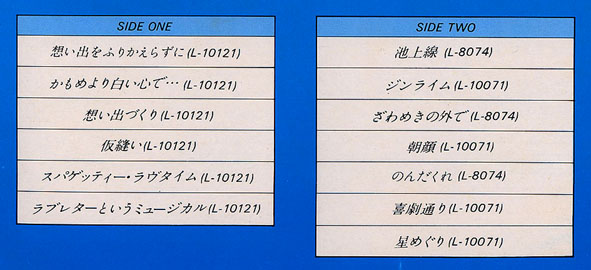 SIDE ONE
想い出をふりかえらずに(L-10121)
かもめより白い心で…(L-10121)
想い出づくり(L-10121)
仮縫い(L-10121)
スパゲッティー・ラヴタイム(L-10121)
ラブレターというミュージカル(L-10121)
SIDE TWO
池上線(L-8074)
ジンライム(L-10071)
ざわめきの外で(L-8074)
朝顔(L-10071)
のんだくれ(L-8074)
喜劇通り(L-10071)
星めぐり(L-10071)